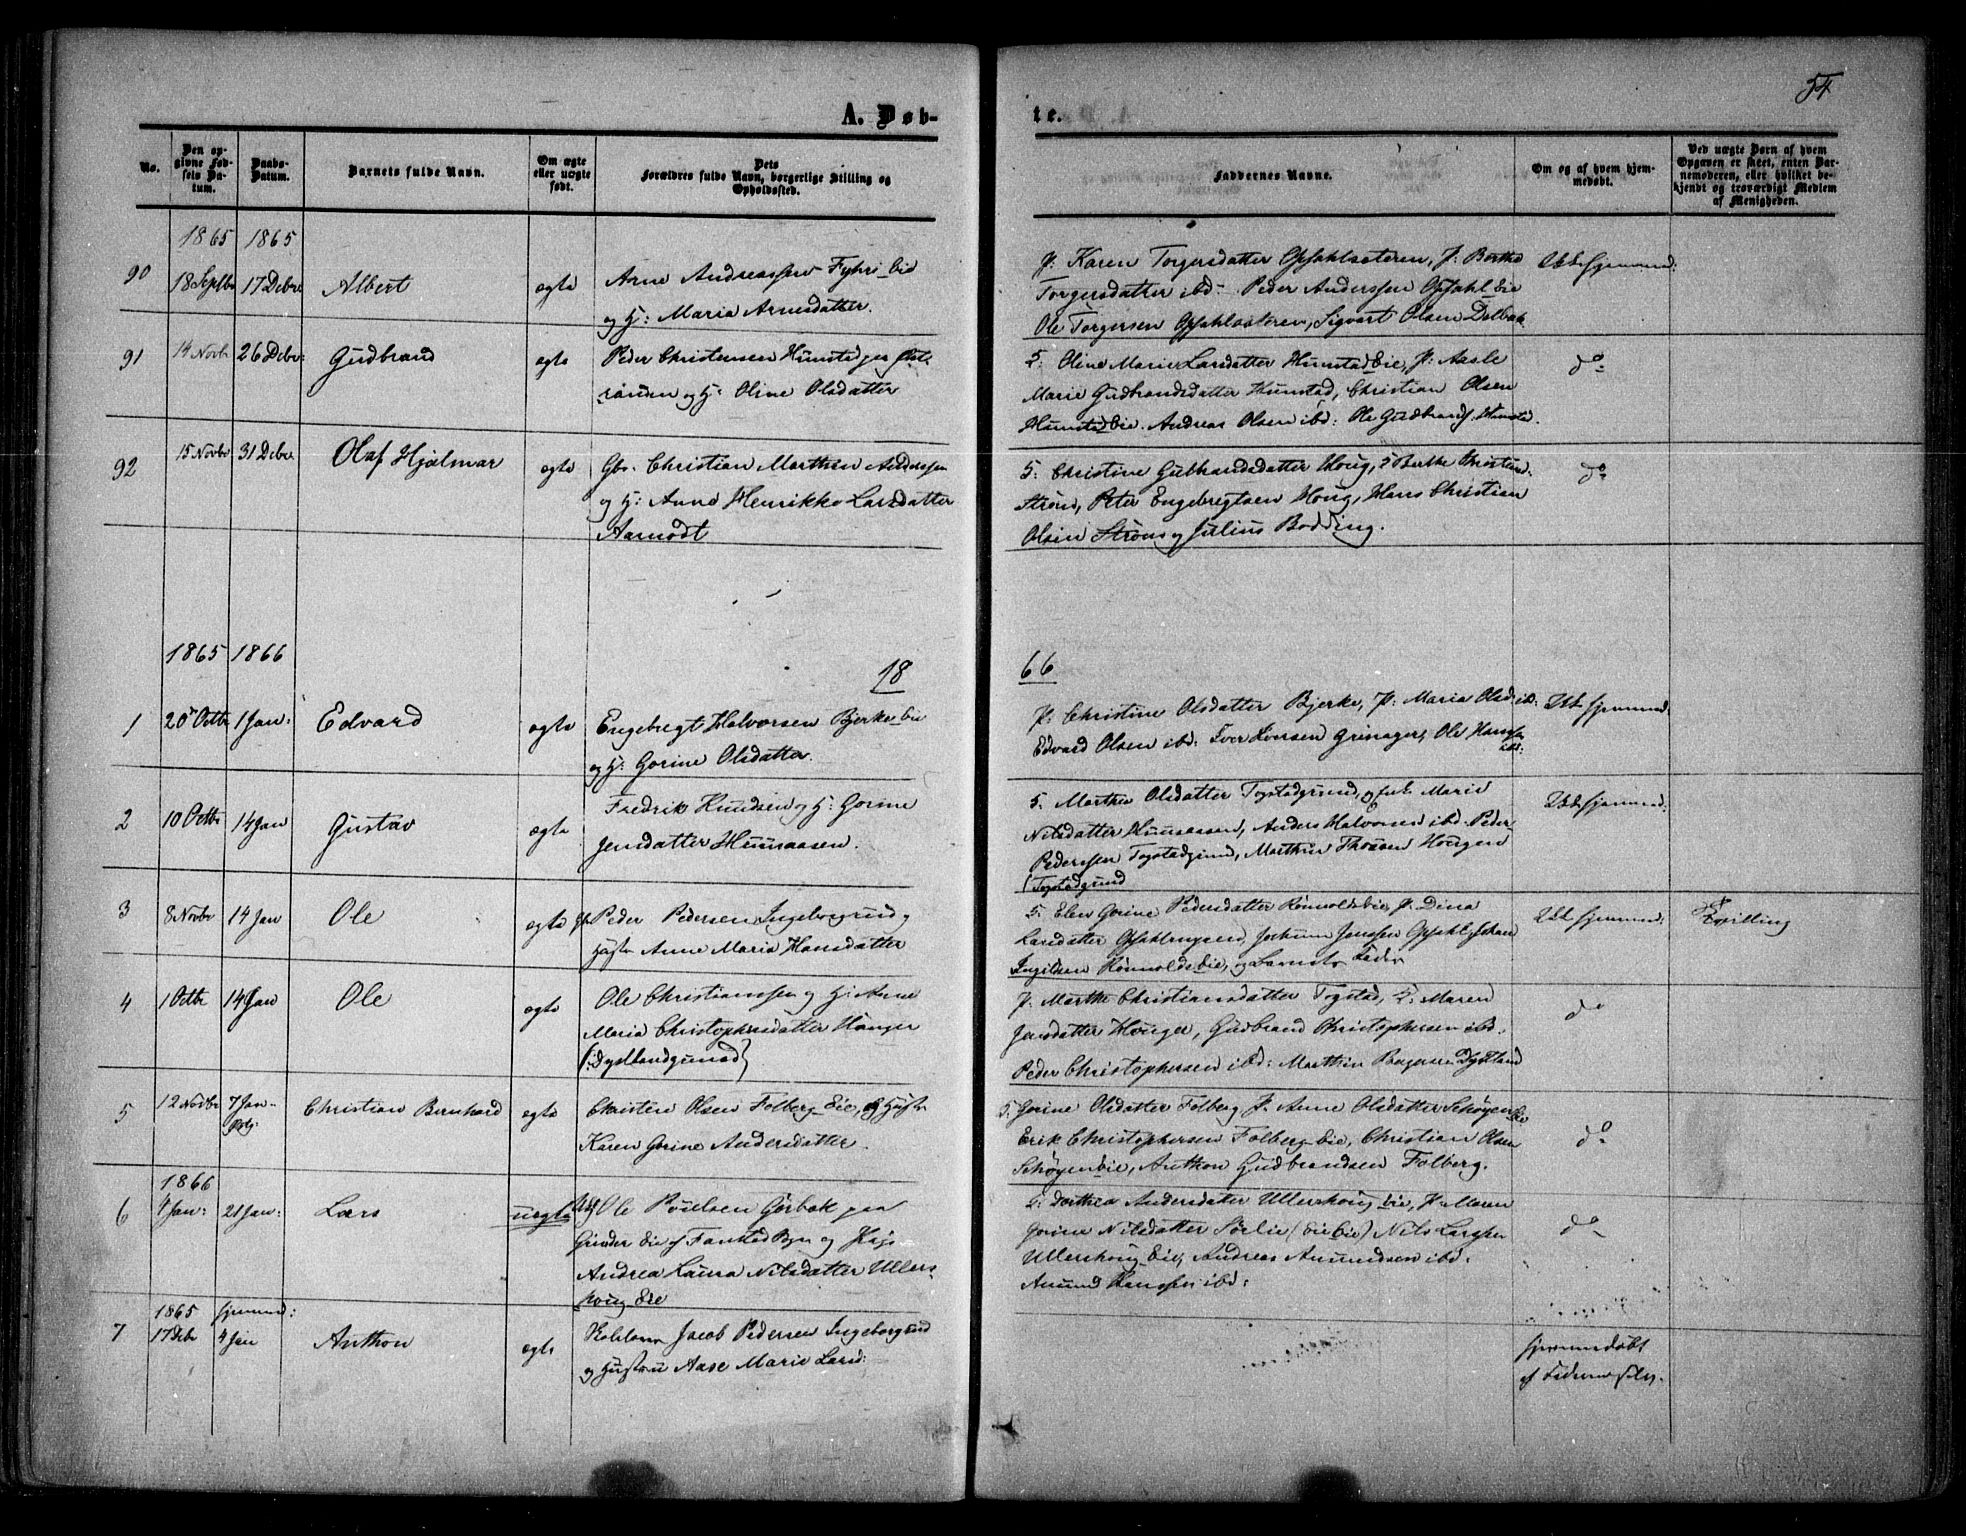 54
A. Døb-
te.
No.
Den op-
givne Fød-
sels Da-
tum.
Daabs-
Datum.
Barnets fulde Navn.
Om ægte
eller uægte
født.
Dets
Forældres fulde Navn, borgerlige Stilling og
Opholdssted.
Faddernes Navne.
Om og af hvem hjem-
medøbt.
Ved uægte Børn af hvem
Opgaven er skeet, enten Bar-
nemoderen, eller hvilket be-
kjendt og troværdigt Medlem
af Menigheden.
1865 1865
90 18 Septbr 17 Debr Albert ægte Arne Andreassen Fyhri-eie
og H: Maria Arnesdatter.
P: Karen Torgersdatter Opsahlsæteren, P. Berthe
Torgersdatter ibd: Peder Anderssen Opsahl Eie
Ole Torgersen Opsahlsæteren, Sigvart Olsen Dælbak
91 14 Novbr 26 Debr Gudbrand ægte Peder Christensen Hunstad paa
og H: Oline Olsdatter
5: Oline Marie Larsdatter Hunstad Eie, P: Aasle
Marie Gudbrandsdatter Hunstad, Christian Olsen
Hunstad Eie. Andreas Olsen ibd: Ole Gudbrands. Hunstad.
do
92 15 Novbr 31 Debr Olaf Hjalmar ægte Gbr. Christian Marthin Andersen
og H: Anne Henrikke Larsdatter
Aamodt
5: Christine Gulbrandsdatter Houg, 5 Berthe Christians.
Strøm, Peter Engebregtsen Houg, Hans Christian
Olsen Strøm og Julius Bodding.
do
1865 1866
18
66
1 20 Octbr 1 Jan: Edvard ægte Engebregt Halvorsen Bjerke-eie
og H: Gorine Olsdatter.
P: Christine Olsdatter Bjerke, P: Maria Olsd: ibd:
Edvard Olsen ibd: Iver Iversen Grinager, Ole Hansen
ibd:
2 10 Octbr 14 Jan Gustav ægte Fredrik Knudsen og H: Gorine
Jensdatter Huusaasen.
5. Marthe Olsdatter Togstadgrund, og Enke Marie
Nilsdatter Huusaasen, Anders Halvorsen ibd. Peder
Pedersen Togstadgrund, Marthin Thoresen Hougen
(Togstadgrund
3 8 Novbr 14 Jan Ole ægte Peder Pedersen Ingeborgrud og
Hustr Anne Maria Hansdatter
5. Elen Gorine Pedersdatter Rønnolds eie, P. Dina
Larsdatter Opsahlrugsand, Jochum Jenssen Opsahl, Johan
Ingilsen Rønnolds Eie, og Barnets Fader
Tvilling
4 1 Octbr 14 Jan Ole ægte Ole Christianssen og H: Anne
Maria Christophersdatter Hanger
(: Dystlandgrund)
P: Marthe Christiansdatter Togstad, 5: Maren
Jensdatter Hanger, Gudbrand Christophersen ibd.
Peder Christophersen ibd: Marthin Dystland
do
5 12 Novbr 7 Jan- Christian Bernhard ægte Christen Olsen Folberg Eie, og Hustr
Karen Gorine Andersdatter.
5. Gorine Olsdatter Folberg, P. Anne Olsdatter Schøyen Eie
Erik Christophersen Folberg-Eie, Christian Olsen
Schøyen Eie, Anthon Gudbrandsen Folberg.
do
1866
6 4 Jan: 21 Jan: Lars uægte Ole Poulsen Gorbak paa
Grinder Eie af Fansted Byn og Pige
Andrea Laura Nilsdatter Ullers-
houg Eie
5: Dorthea Andersdatter Ullershoug Eie, P. Maren
Gorine Nilsdatter Sørlie (Eie Eie) Nils Larssen
Ullershoug Eie, Andreas Amundsen ibd.
Amund Hanssen ibd:
do
1865 hjemmed:
7 17 Debr 4 Jan Anthon ægte Jacob Pedersen Ingeborgrud
og Hustru Aase Marie Larsd:
hjemmedøbt
af Faderen selv.